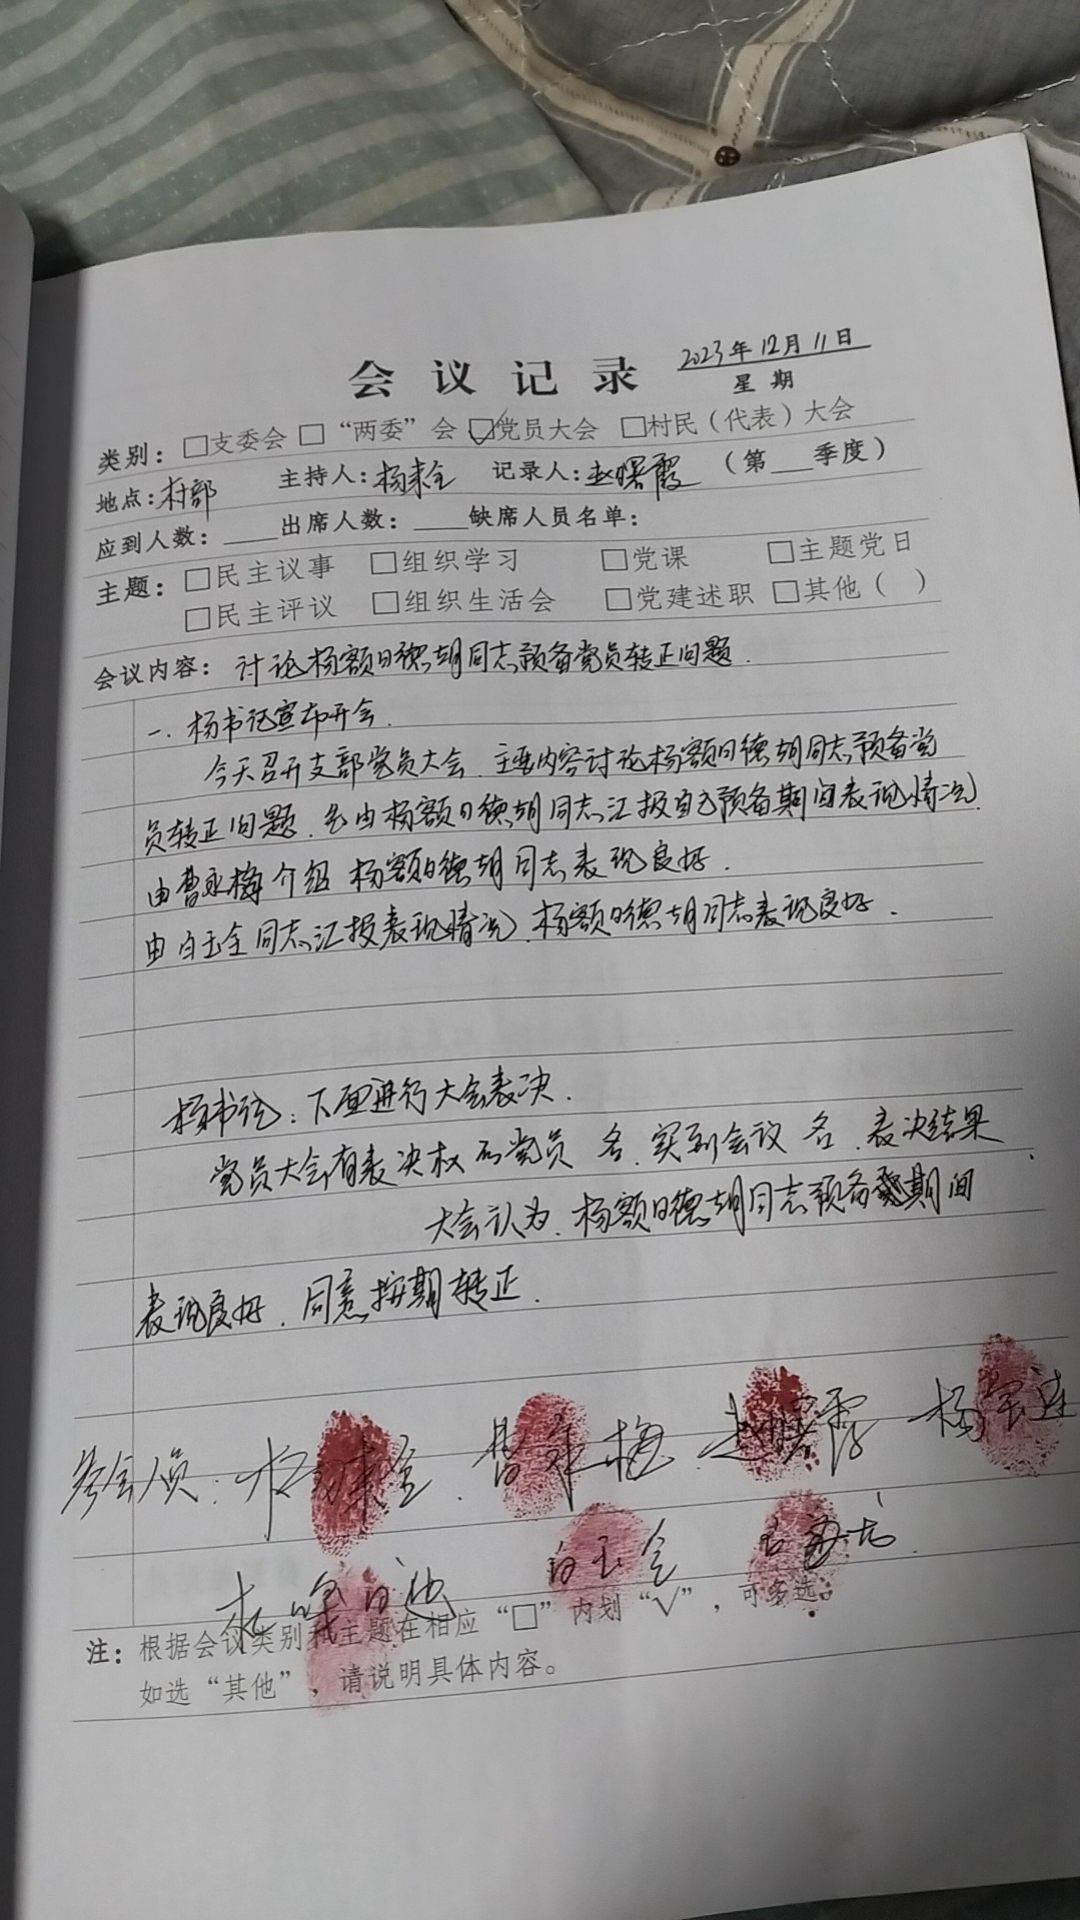 会议记录 2023年12月11日
星期
类别：□支委会 □“两委”会 ☑党员大会 □村民（代表）大会
地点：村部 主持人：杨来全 记录人：赵曙霞 （第___季度）
应到人数：____出席人数：____缺席人员名单：
主题：□民主议事 □组织学习 □党课 □主题党日
□民主评议 □组织生活会 □党建述职 □其他（ ）
会议内容：讨论杨额日德胡同志预备党员转正问题.
一、杨书记宣布开会.
今天召开支部党员大会.主要内容讨论杨额日德胡同志预备党
员转正问题.先由杨额日德胡同志汇报自己预备期间表现情况.
由曹永梅介绍 杨额日德胡同志表现良好.
由白玉全同志汇报表现情况.杨额日德胡同志表现良好.
杨书记：下面进行大会表决.
党员大会有表决权的党员 名.实到会议 名.表决结果
大会认为.杨额日德胡同志预备期间
表现良好.同意按期转正.
参会人员：杨来全.曹永梅.赵曙霞
白玉全
注：根据会议类别和主题在相应“□”内划“√”，可多选。
如选“其他”，请说明具体内容。